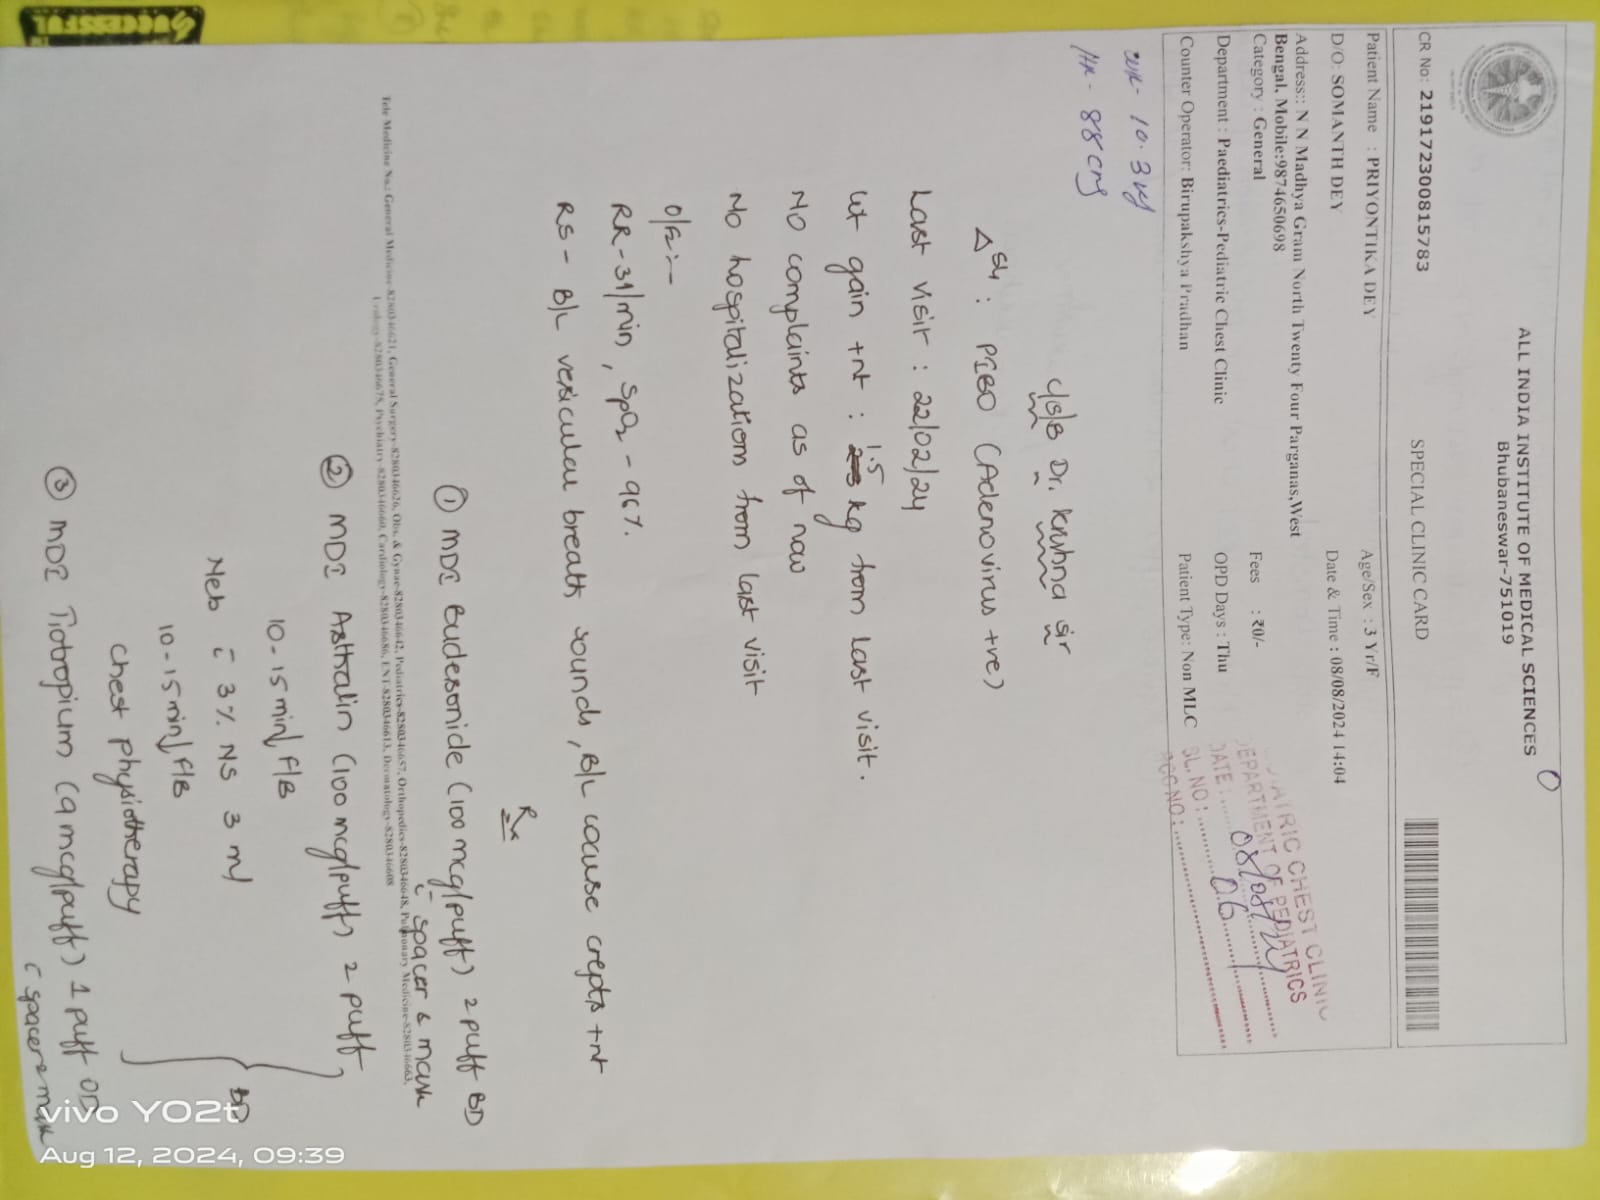 ALL INDIA INSTITUTE OF MEDICAL SCIENCES
Bhubaneswar-751019
CR No: 219172300815783
SPECIAL CLINIC CARD
Patient Name : PRIYONTIKA DEY
Age/Sex : 3 Yr/F
D/O: SOMANTH DEY
Date & Time : 08/08/2024 14:04
Address:: N N Madhya Gram North Twenty Four Parganas,West
Bengal, Mobile:9874650698
Category : General
Fees : ₹0/-
Department : Paediatrics-Pediatric Chest Clinic
OPD Days : Thu
Counter Operator: Birupakshya Pradhan
Patient Type: Non MLC
ATRIC CHEST CLINIC
DEPARTMENT OF PEDIATRICS
DATE: 08/08/24
SL. NO: 06
REG NO:
10.3 kg
Ht - 88 cm
C/S/B Dr. Krishna sir
Δsis : PIBO (Adenovirus +ve)
Last visit : 22/02/24
Wt gain +nt : 1.5 kg from last visit.
No complaints as of now
No hospitalizations from last visit
O/E:-
RR-31/min, SpO2 - 96%.
RS - B/L vesicular breath sounds, B/L coarse crepts +nt
Rx
① MDI Budesonide (100 mcg/puff) 2 puff BD
c̄ spacer & mask
Tele Medicine No.: General Medicine-8280346621, General Surgery-8280346626, Obs. & Gynae-8280346642, Pediatrics-8280346657, Orthopedics-8280346648, Pulmonary Medicine-8280346663,
Urology-8280346678, Psychiatry-8280346660, Cardiology-8280346686, ENT-8280346613, Dermatology-8280346608
② MDI Asthalin (100 mcg/puff) 2 puff
10-15 min f/b
Neb c̄ 3% NS 3 ml
10-15 min f/b
Chest physiotherapy
BD
③ MDI Tiotropium (9 mcg/puff) 1 puff OD
c̄ spacer & mask
SUCCESSFUL
vivo Y02t
Aug 12, 2024, 09:39